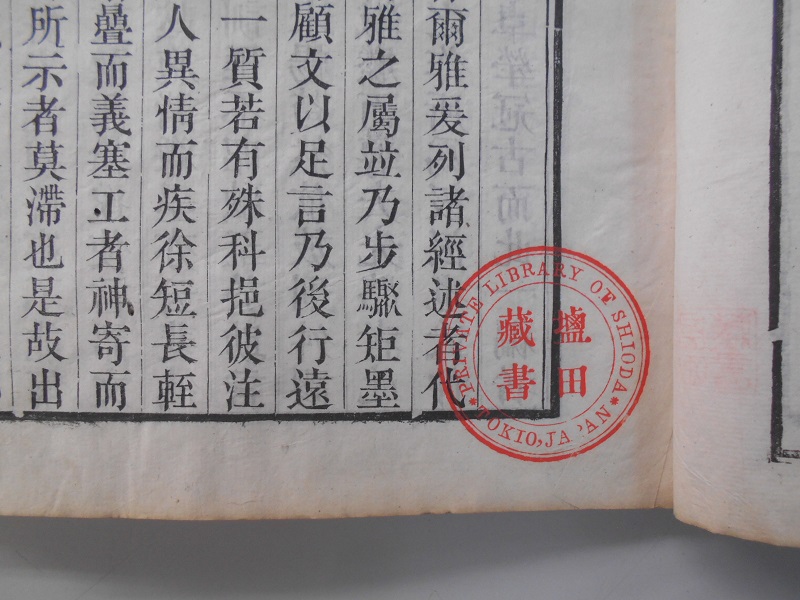 爾雅爰列諸經述者代
雅之屬竝乃步驟矩墨
顧文以足言乃後行遠
一質若有殊科挹彼注
人異情而疾徐短長輊
疊而義塞工者神寄而
所示者莫滯也是故出
PRIVATE LIBRARY OF SHIODA
* TOKIO, JAPAN *
塩田
藏書